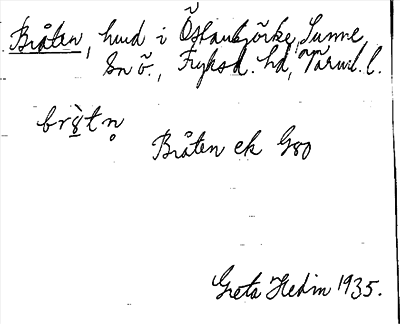 Bråten, hmd i Östanbjörke, Sunne
sn ö., Fryksd. hd, Värml. l.
brò̤tn̥
Bråten ek Gso
Greta Hedin 1935.